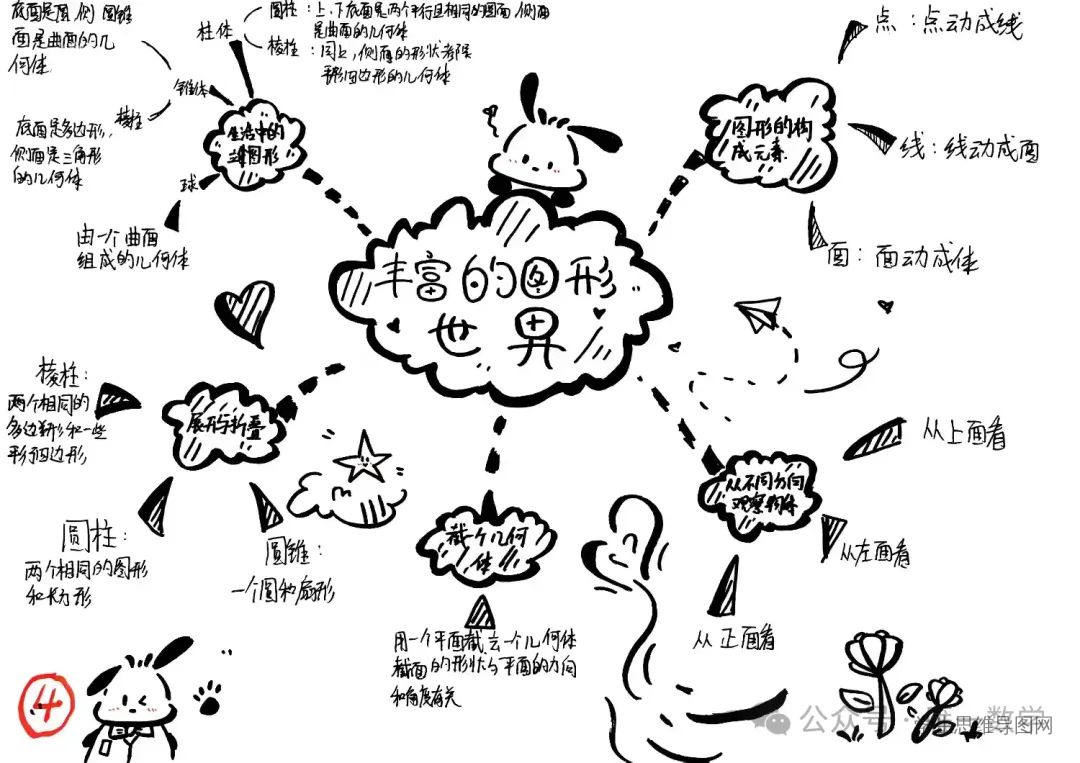 丰富的图形
世界
生活中的
立体图形
柱体
圆柱：上、下底面是两个平行且相同的圆面，侧面
是曲面的几何体
棱柱：同上，侧面的形状都是
平行四边形的几何体
锥体
圆锥
底面是圆，侧
面是曲面的几
何体
棱柱
底面是多边形，
侧面是三角形
的几何体
球
由一个曲面
组成的几何体
图形的构
成元素
点：点动成线
线：线动成面
面：面动成体
从不同方向
观察物体
从上面看
从左面看
从正面看
截个几何
体
用一个平面截去一个几何体
截面的形状与平面的方向
和角度有关
展开与折叠
棱柱：
两个相同的
多边形和一些
平行四边形
圆柱：
两个相同的图形
和长方形
圆锥：
一个圆和扇形
4
公众号
数学
思维导图网